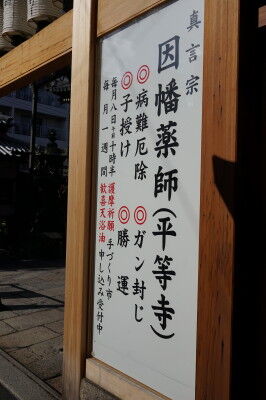 真言宗
因幡薬師(平等寺)
◎病難厄除 ◎ガン封じ
◎子授け ◎勝運
毎月八日午前十時半 護摩祈願 手づくり市
毎月一週間 歓喜天浴油 申し込み受付中